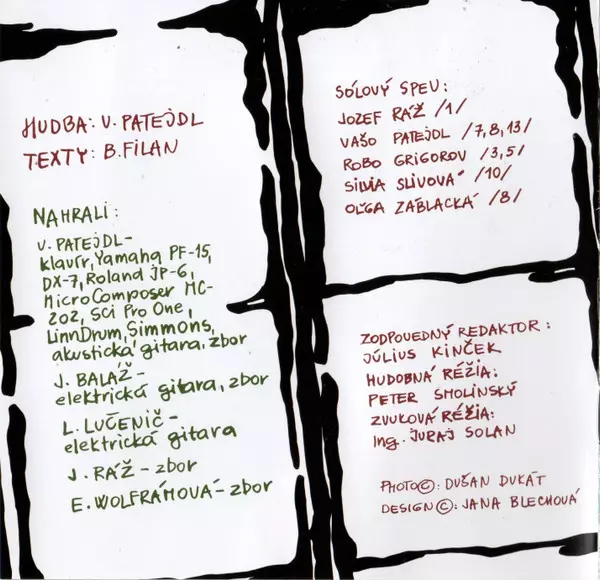 HUDBA: V. PATEJDL
TEXTY: B. FILAN
NAHRALI:
V. PATEJDL-
klavír, Yamaha PF-15,
DX-7, Roland JP-6,
MicroComposer MC-
202, SCI Pro One,
LinnDrum, Simmons,
akustická gitara, zbor
J. BALÁŽ-
elektrická gitara, zbor
L. LUČENIČ-
elektrická gitara
J. RÁŽ - zbor
E. WOLFRÁMOVÁ - zbor
SÓLOVÝ SPEV:
JOZEF RÁŽ /1/
VAŠO PATEJDL /7,8,13/
ROBO GRIGOROV /3,5/
SILVIA SLIVOVÁ /10/
OĽGA ZÁBLACKÁ /8/
ZODPOVEDNÝ REDAKTOR:
JÚLIUS KINČEK
HUDOBNÁ RÉŽIA:
PETER SMOLINSKÝ
ZVUKOVÁ RÉŽIA:
Ing. JURAJ SOLAN
PHOTO©: DUŠAN DUKÁT
DESIGN©: JANA BLECHOVÁ